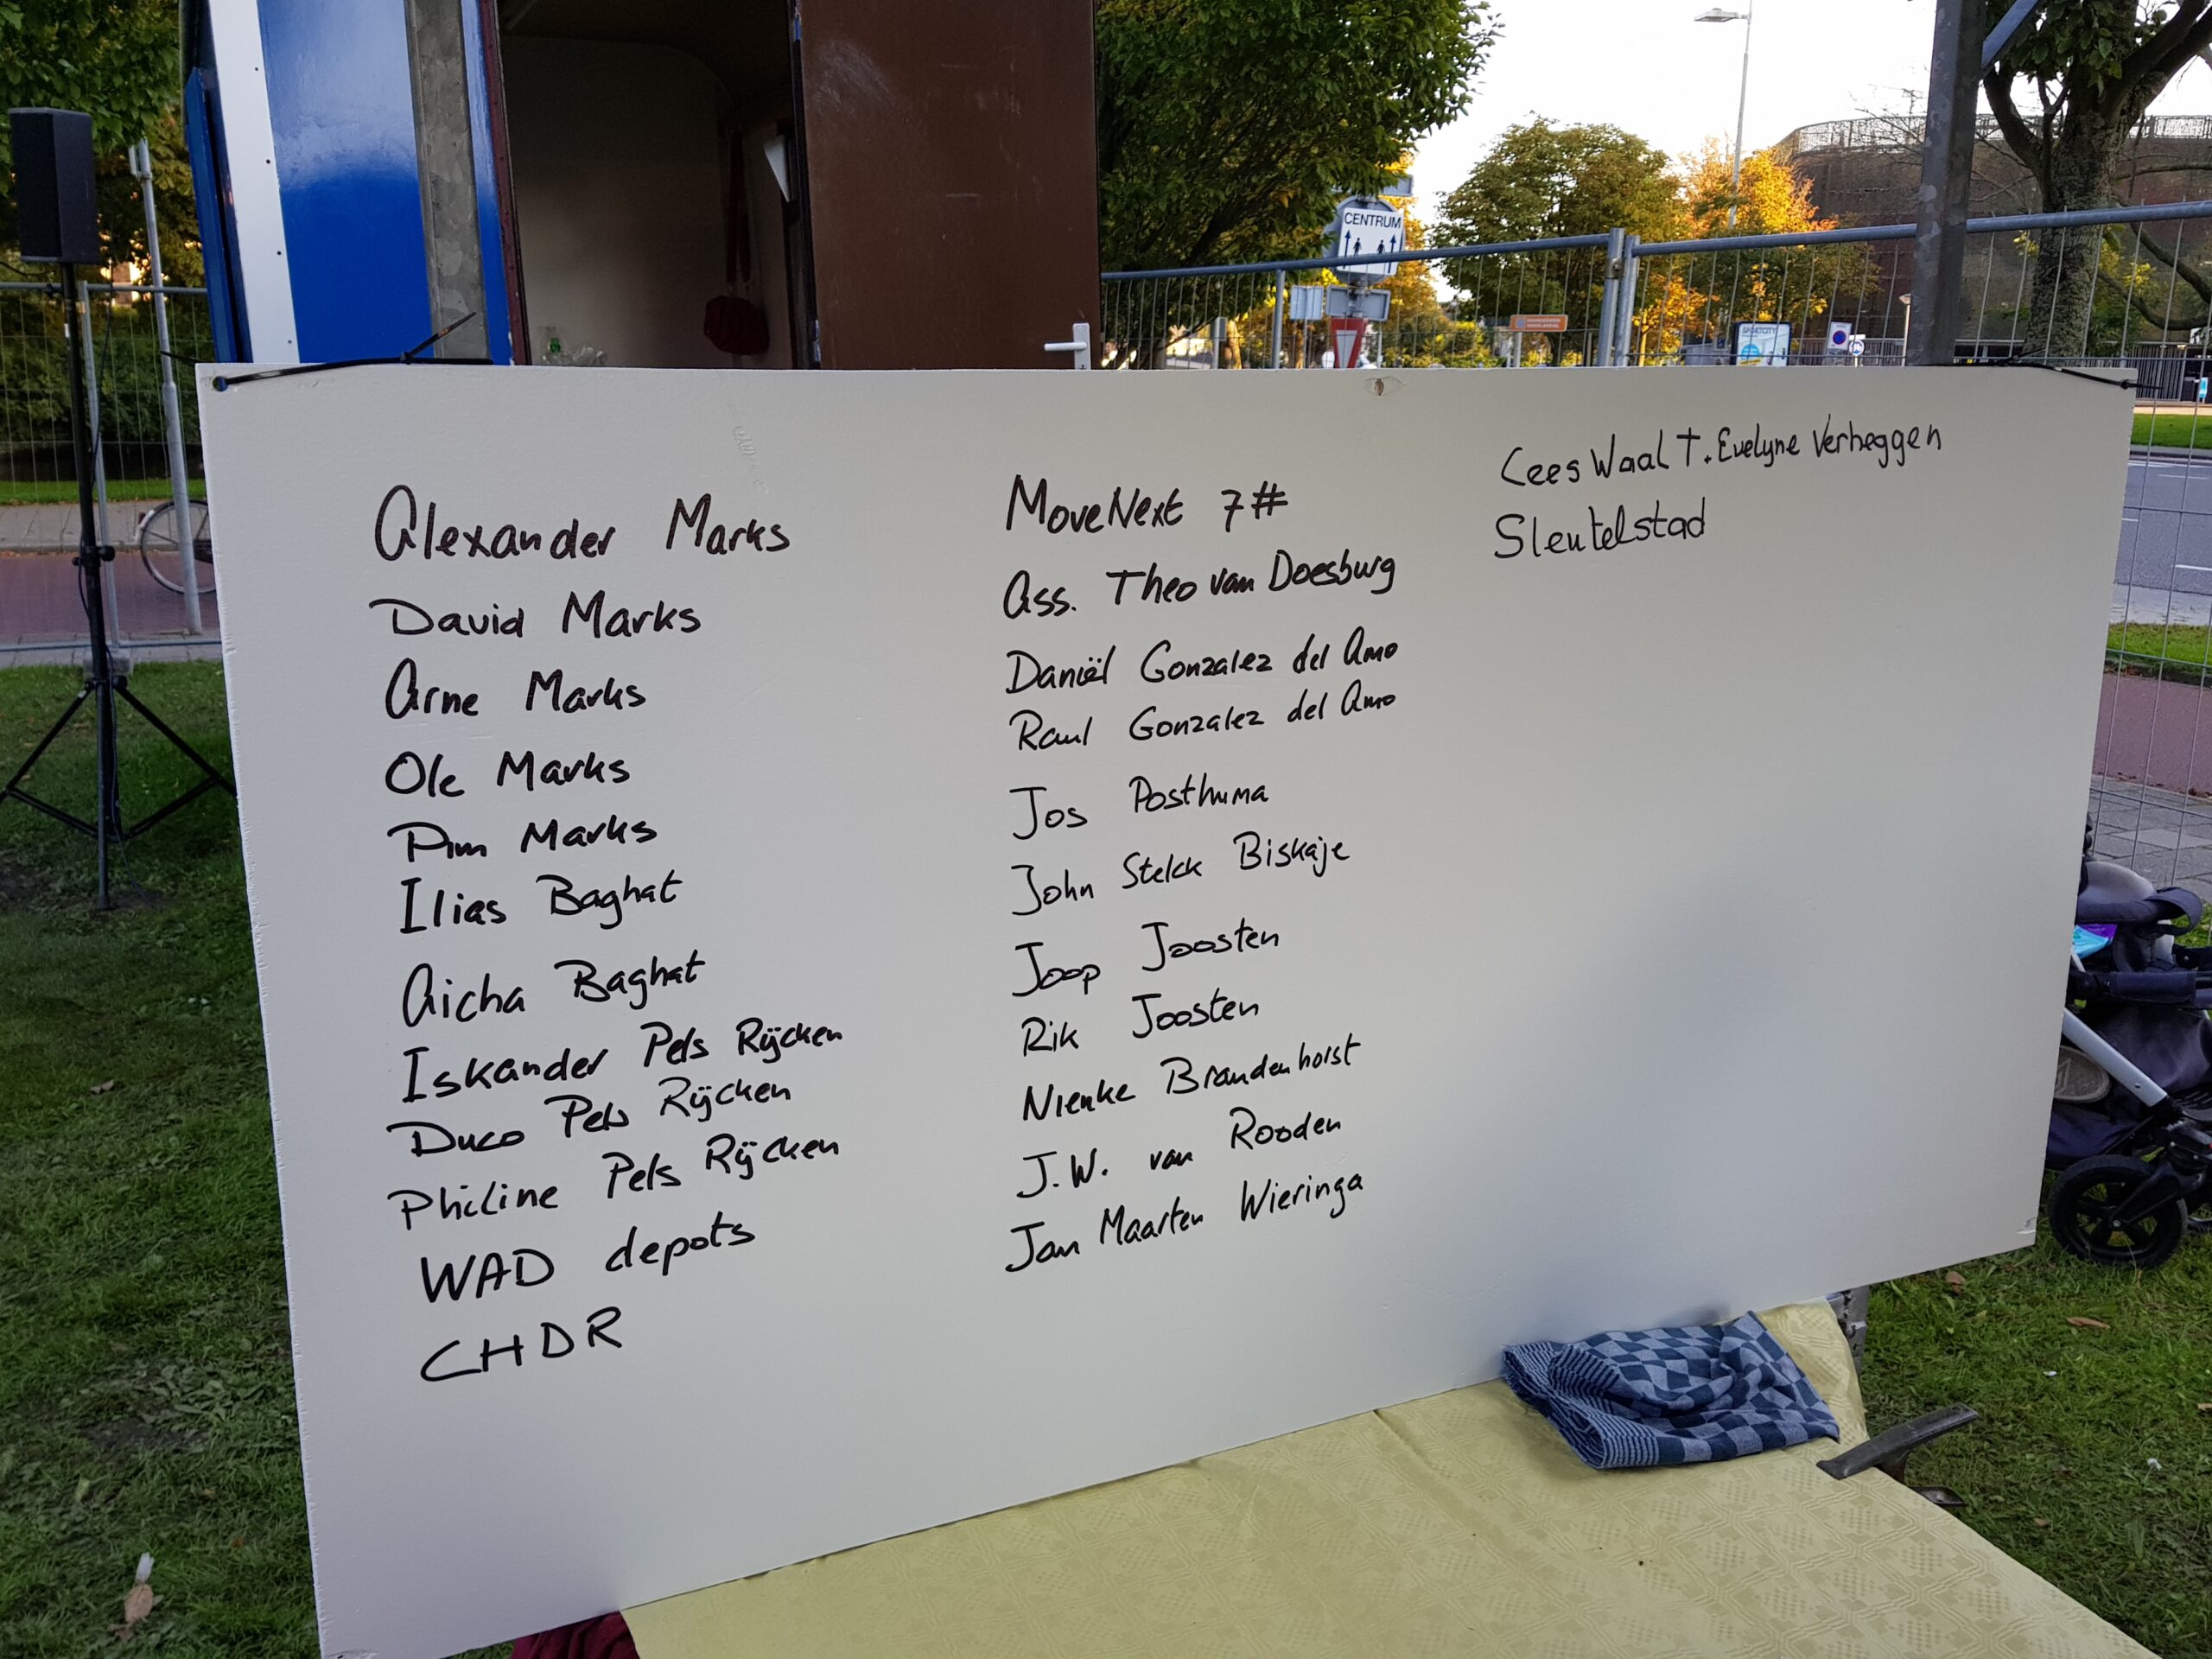 CENTRUM
Alexander Marks
David Marks
Arne Marks
Ole Marks
Pim Marks
Ilias Baghat
Aicha Baghat
Iskander Pels Rijcken
Duco Pels Rijcken
Philine Pels Rijcken
WAD depots
CHDR
MoveNext 7#
Ass. Theo van Doesburg
Daniël Gonzalez del Amo
Raul Gonzalez del Amo
Jos Posthuma
John Stelck Biskaje
Joop Joosten
Rik Joosten
Nienke Brandenhorst
J.W. van Rooden
Jan Maarten Wieringa
Cees Waal T. Evelyne Verheggen
Sleutelstad